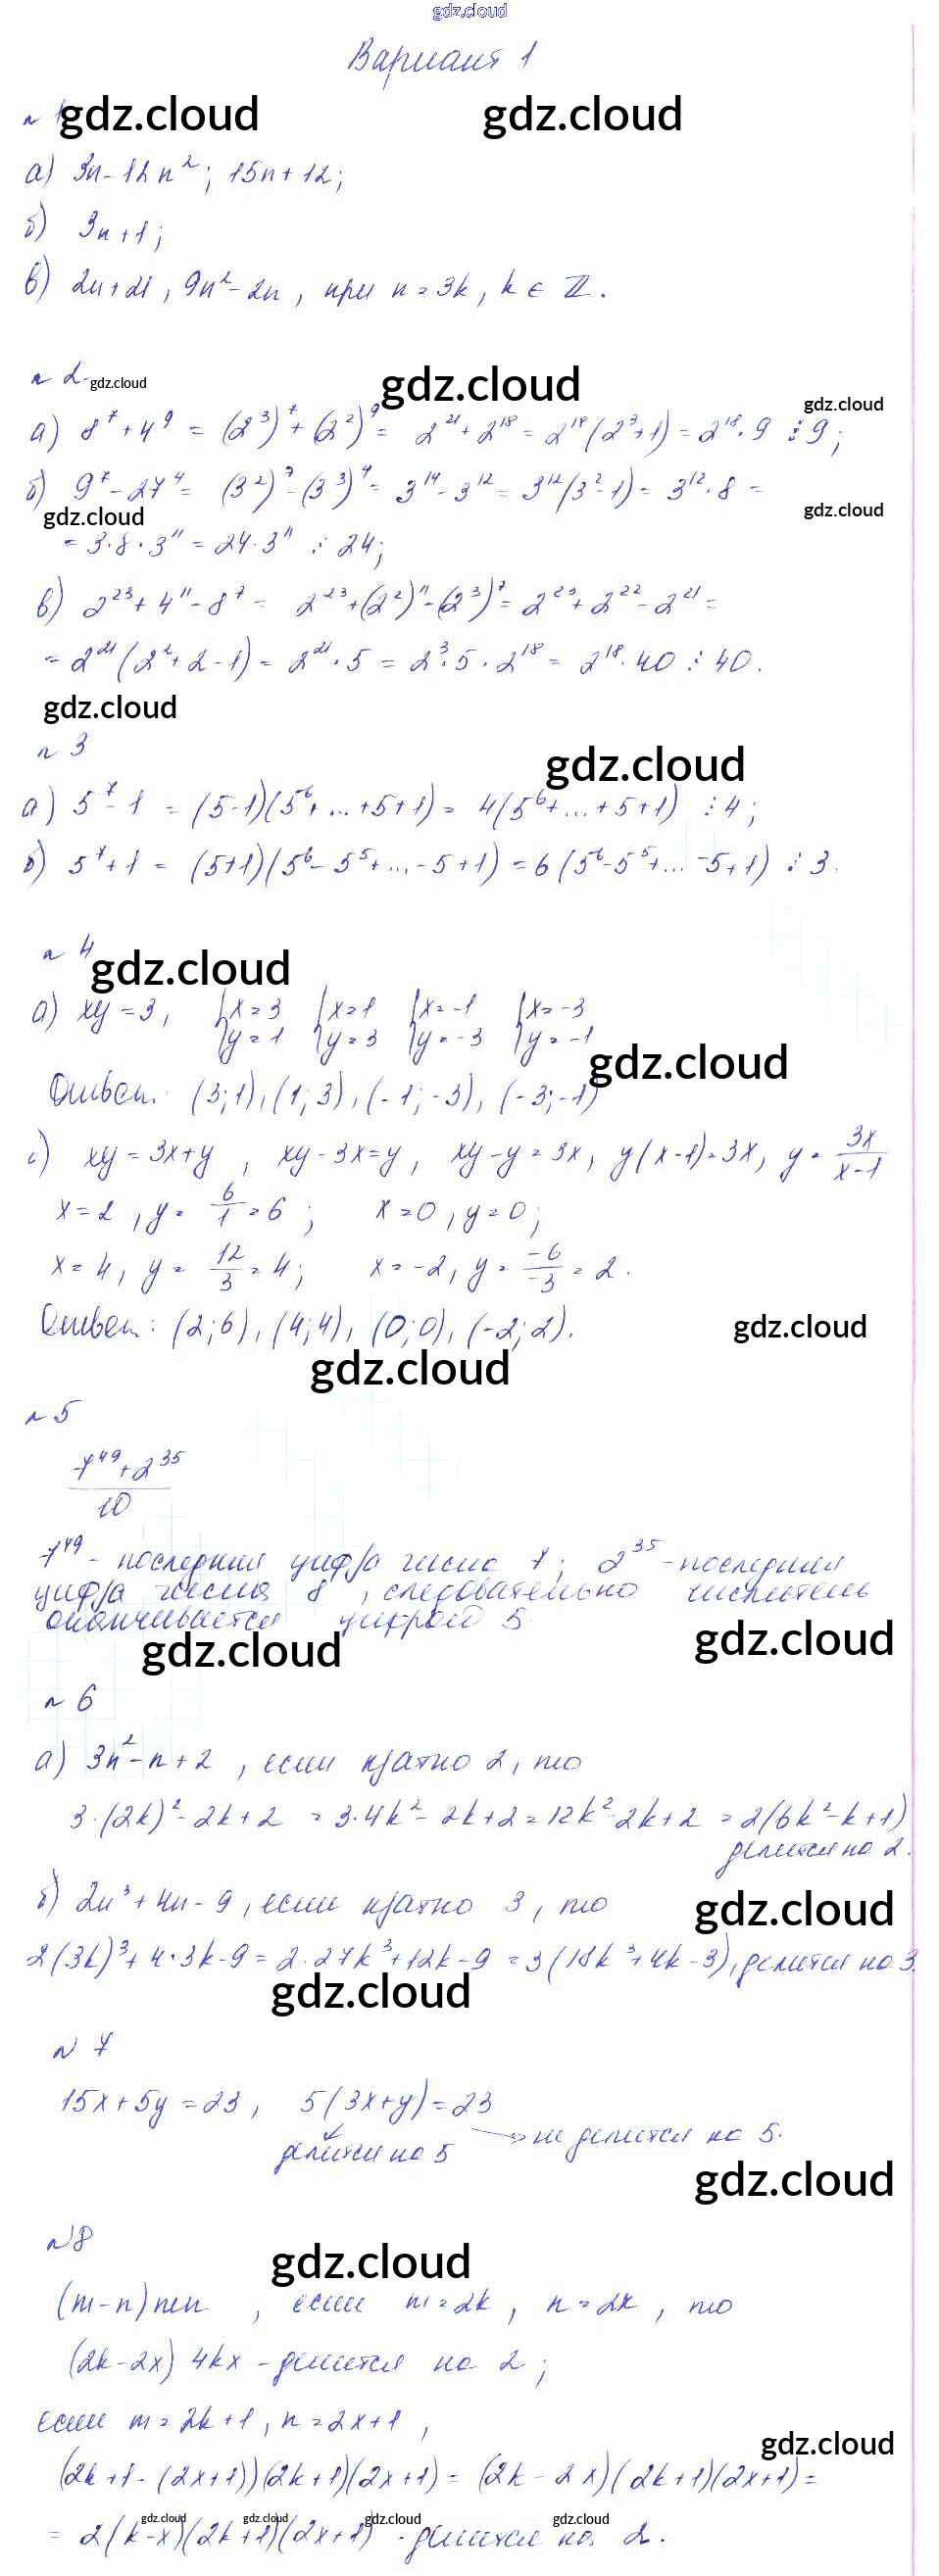 gdz.cloud
Вариант 1
n 1 gdz.cloud gdz.cloud
а) 3n - 12n²; 15n + 12;
б) 3n + 1;
в) 2n + 21, 9n² - 2n, при n = 3k, k ∈ ℤ.
n 2. gdz.cloud gdz.cloud
gdz.cloud
а) 8⁷ + 4⁹ = (2³)⁷ + (2²)⁹ = 2²¹ + 2¹⁸ = 2¹⁸(2³+1) = 2¹⁸·9 ⋮ 9;
б) 9⁷ - 27⁴ = (3²)⁷ - (3³)⁴ = 3¹⁴ - 3¹² = 3¹²(3²-1) = 3¹²·8 =
gdz.cloud gdz.cloud
= 3·8·3¹¹ = 24·3¹¹ ⋮ 24;
в) 2²³ + 4¹¹ - 8⁷ = 2²³ + (2²)¹¹ - (2³)⁷ = 2²³ + 2²² - 2²¹ =
= 2²¹(2² + 2 - 1) = 2²¹·5 = 2³·5·2¹⁸ = 2¹⁸·40 ⋮ 40.
gdz.cloud
n 3
gdz.cloud
а) 5⁷ - 1 = (5-1)(5⁶ + ... + 5 + 1) = 4(5⁶ + ... + 5 + 1) ⋮ 4;
б) 5⁷ + 1 = (5+1)(5⁶ - 5⁵ + ... - 5 + 1) = 6(5⁶ - 5⁵ + ... - 5 + 1) ⋮ 3.
n 4 gdz.cloud
а) xy = 3, {x = 3 {x = 1 {x = -1 {x = -3
y = 1 y = 3 y = -3 y = -1
gdz.cloud
Ответ: (3;1), (1;3), (-1;-3), (-3;-1)
xy = 3x + y, xy - 3x = y, xy - y = 3x, y(x-1) = 3x, y = 3x/(x-1)
x = 2, y = 6/1 = 6; x = 0, y = 0;
x = 4, y = 12/3 = 4; x = -2, y = -6/-3 = 2.
Ответ: (2;6), (4;4), (0;0), (-2;2). gdz.cloud
gdz.cloud
n 5
(7⁴⁹ + 2³⁵)/10
7⁴⁹ - последняя цифра числа 7; 2³⁵ - последняя
цифра числа 8, следовательно числитель
оканчивается цифрой 5.
gdz.cloud gdz.cloud
n 6
а) 3n² - n + 2, если кратно 2, то
3·(2k)² - 2k + 2 = 3·4k² - 2k + 2 = 12k² - 2k + 2 = 2(6k² - k + 1)
делится на 2.
б) 2n³ + 4n - 9, если кратно 3, то gdz.cloud
2(3k)³ + 4·3k - 9 = 2·27k³ + 12k - 9 = 3(18k³ + 4k - 3), делится на 3.
gdz.cloud
N 7
15x + 5y = 23, 5(3x+y) = 23
делится на 5 → не делится на 5.
gdz.cloud
N8
gdz.cloud
(m-n)mn, если m = 2k, n = 2x, то
(2k - 2x) 4kx - делится на 2;
если m = 2k + 1, n = 2x + 1,
gdz.cloud
(2k+1 - (2x+1))(2k+1)(2x+1) = (2k - 2x)(2k+1)(2x+1) =
gdz.cloud gdz.cloud gdz.cloud gdz.cloud
= 2(k-x)(2k+1)(2x+1) - делится на 2.